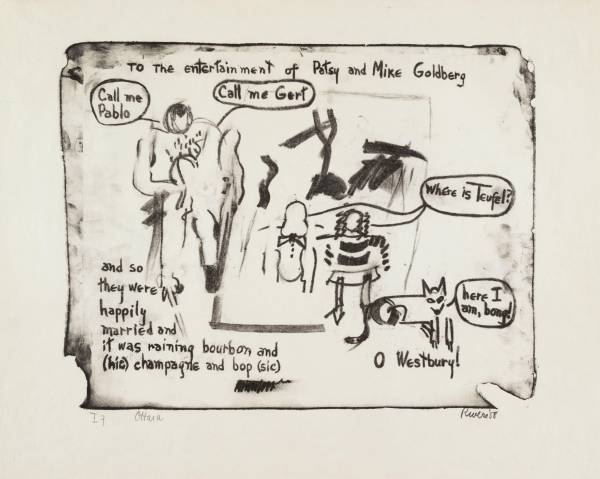 To The entertainment of Patsy and Mike Goldberg
Call me
Pablo
Call me Gert
Where is Teufel?
and so
they were
happily
married and
it was raining bourbon and
(hic) champagne and bop (sic)
here I
am, bong!
O Westbury!
I 7
OHara
Rivers 58